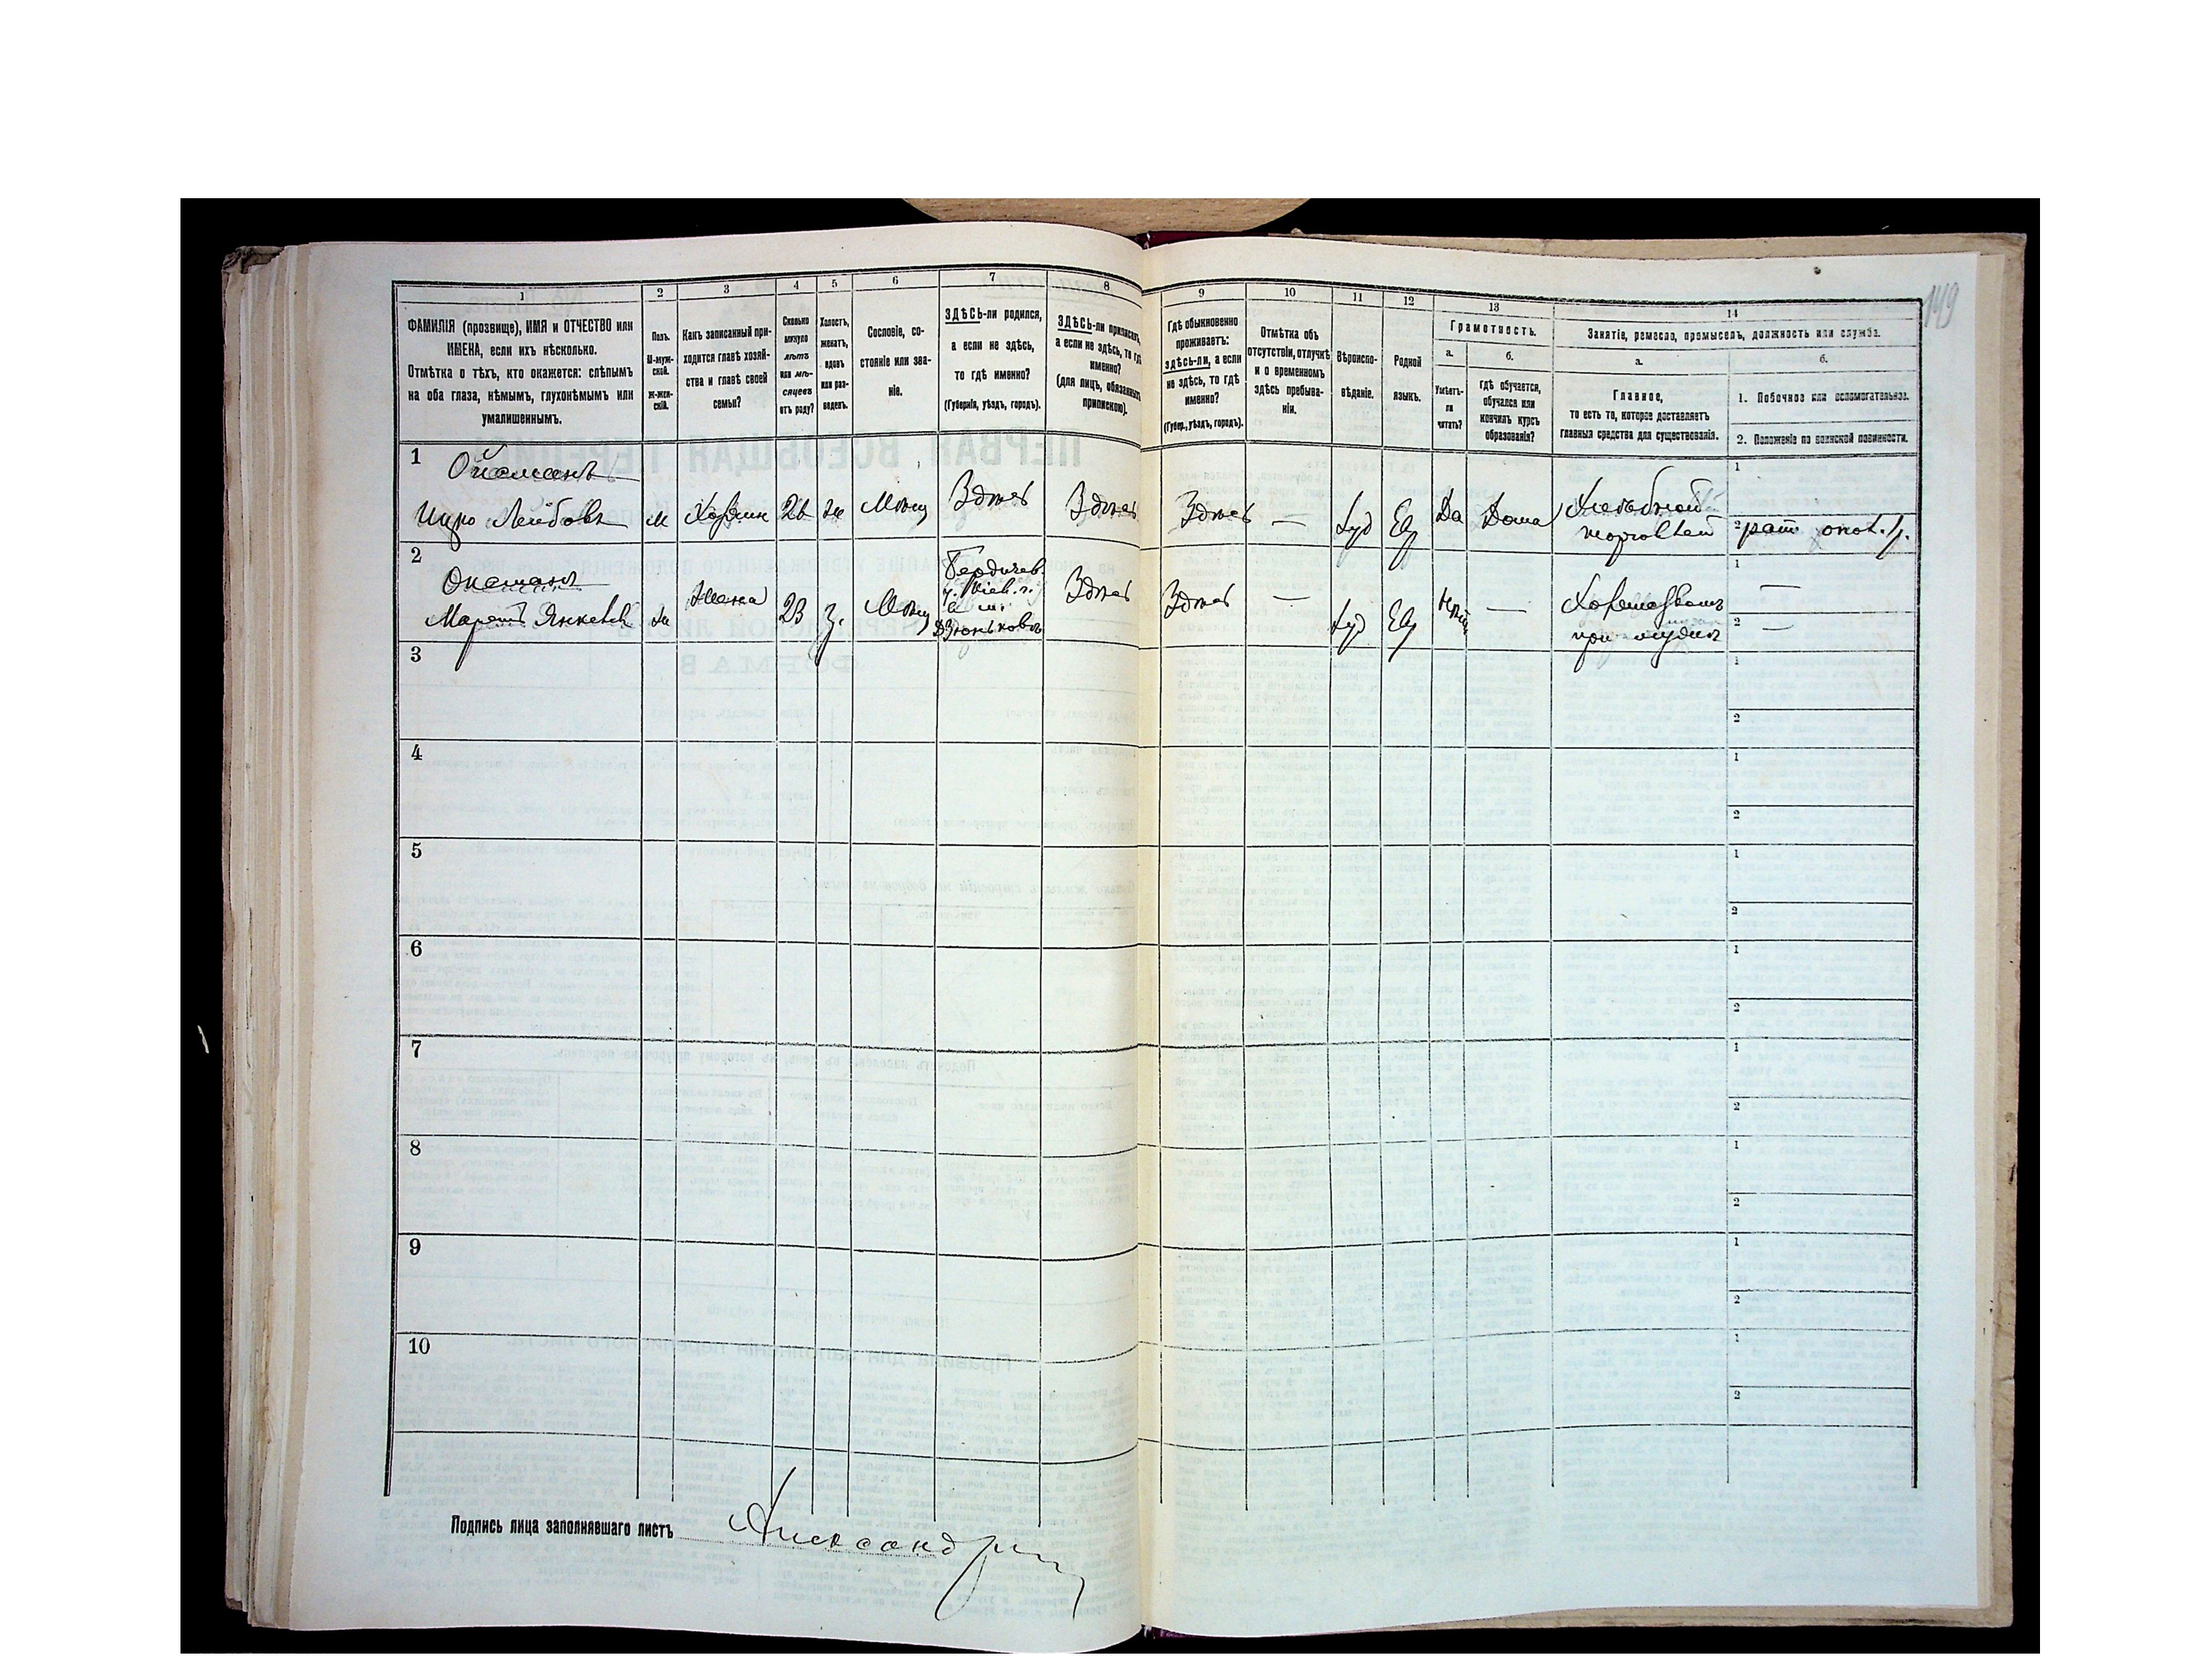 149
1 2 3 4 5 6 7 8 9 10 11 12 13 14
ФАМИЛІЯ (прозвище), ИМЯ и ОТЧЕСТВО или
ИМЕНА, если ихъ нѣсколько.
Отмѣтка о тѣхъ, кто окажется: слѣпымъ
на оба глаза, нѣмымъ, глухонѣмымъ или
умалишеннымъ.
Полъ.
М-муж-
ской.
Ж-жен-
скій.
Какъ записанный при-
ходится главѣ хозяй-
ства и главѣ своей
семьи?
Сколько
минуло
лѣтъ
или мѣ-
сяцевъ
отъ роду?
Холостъ,
женатъ,
вдовъ
или раз-
веденъ.
Сословіе, со-
стояніе или зва-
ніе.
ЗДѢСЬ-ли родился,
а если не здѣсь,
то гдѣ именно?
(Губернія, уѣздъ, городъ).
ЗДѢСЬ-ли приписанъ,
а если не здѣсь, то гдѣ
именно?
(для лицъ, обязанныхъ
припискою).
Гдѣ обыкновенно
проживаетъ:
здѣсь-ли, а если
не здѣсь, то гдѣ
именно?
(Губер., уѣздъ, городъ).
Отмѣтка объ
отсутствіи, отлучкѣ
и о временномъ
здѣсь пребыва-
ніи.
Вѣроиспо-
вѣданіе.
Родной
языкъ.
Грамотность.
а.
Умѣетъ-
ли
читать?
б.
гдѣ обучается,
обучался или
кончилъ курсъ
образованія?
Занятіе, ремесло, промыселъ, должность или служба.
а.
Главное,
то есть то, которое доставляетъ
главныя средства для существованія.
б.
1. Побочное или вспомогательное.
2. Положеніе по воинской повинности.
1
Лейбовъ м Хозяин 26 Мѣщ Здѣсь Здѣсь Здѣсь — Да Дома
торговлей
1
2 рат опол.
2
Янкева Жена 23 з. Мѣщ
Бердичев.
у. Кіев. г.
Здѣсь Здѣсь — —
при мужѣ
1 —
2 —
3
1
2
4
1
2
5
1
2
6
1
2
7
1
2
8
1
2
9
1
2
10
1
2
Подпись лица заполнявшаго листъ